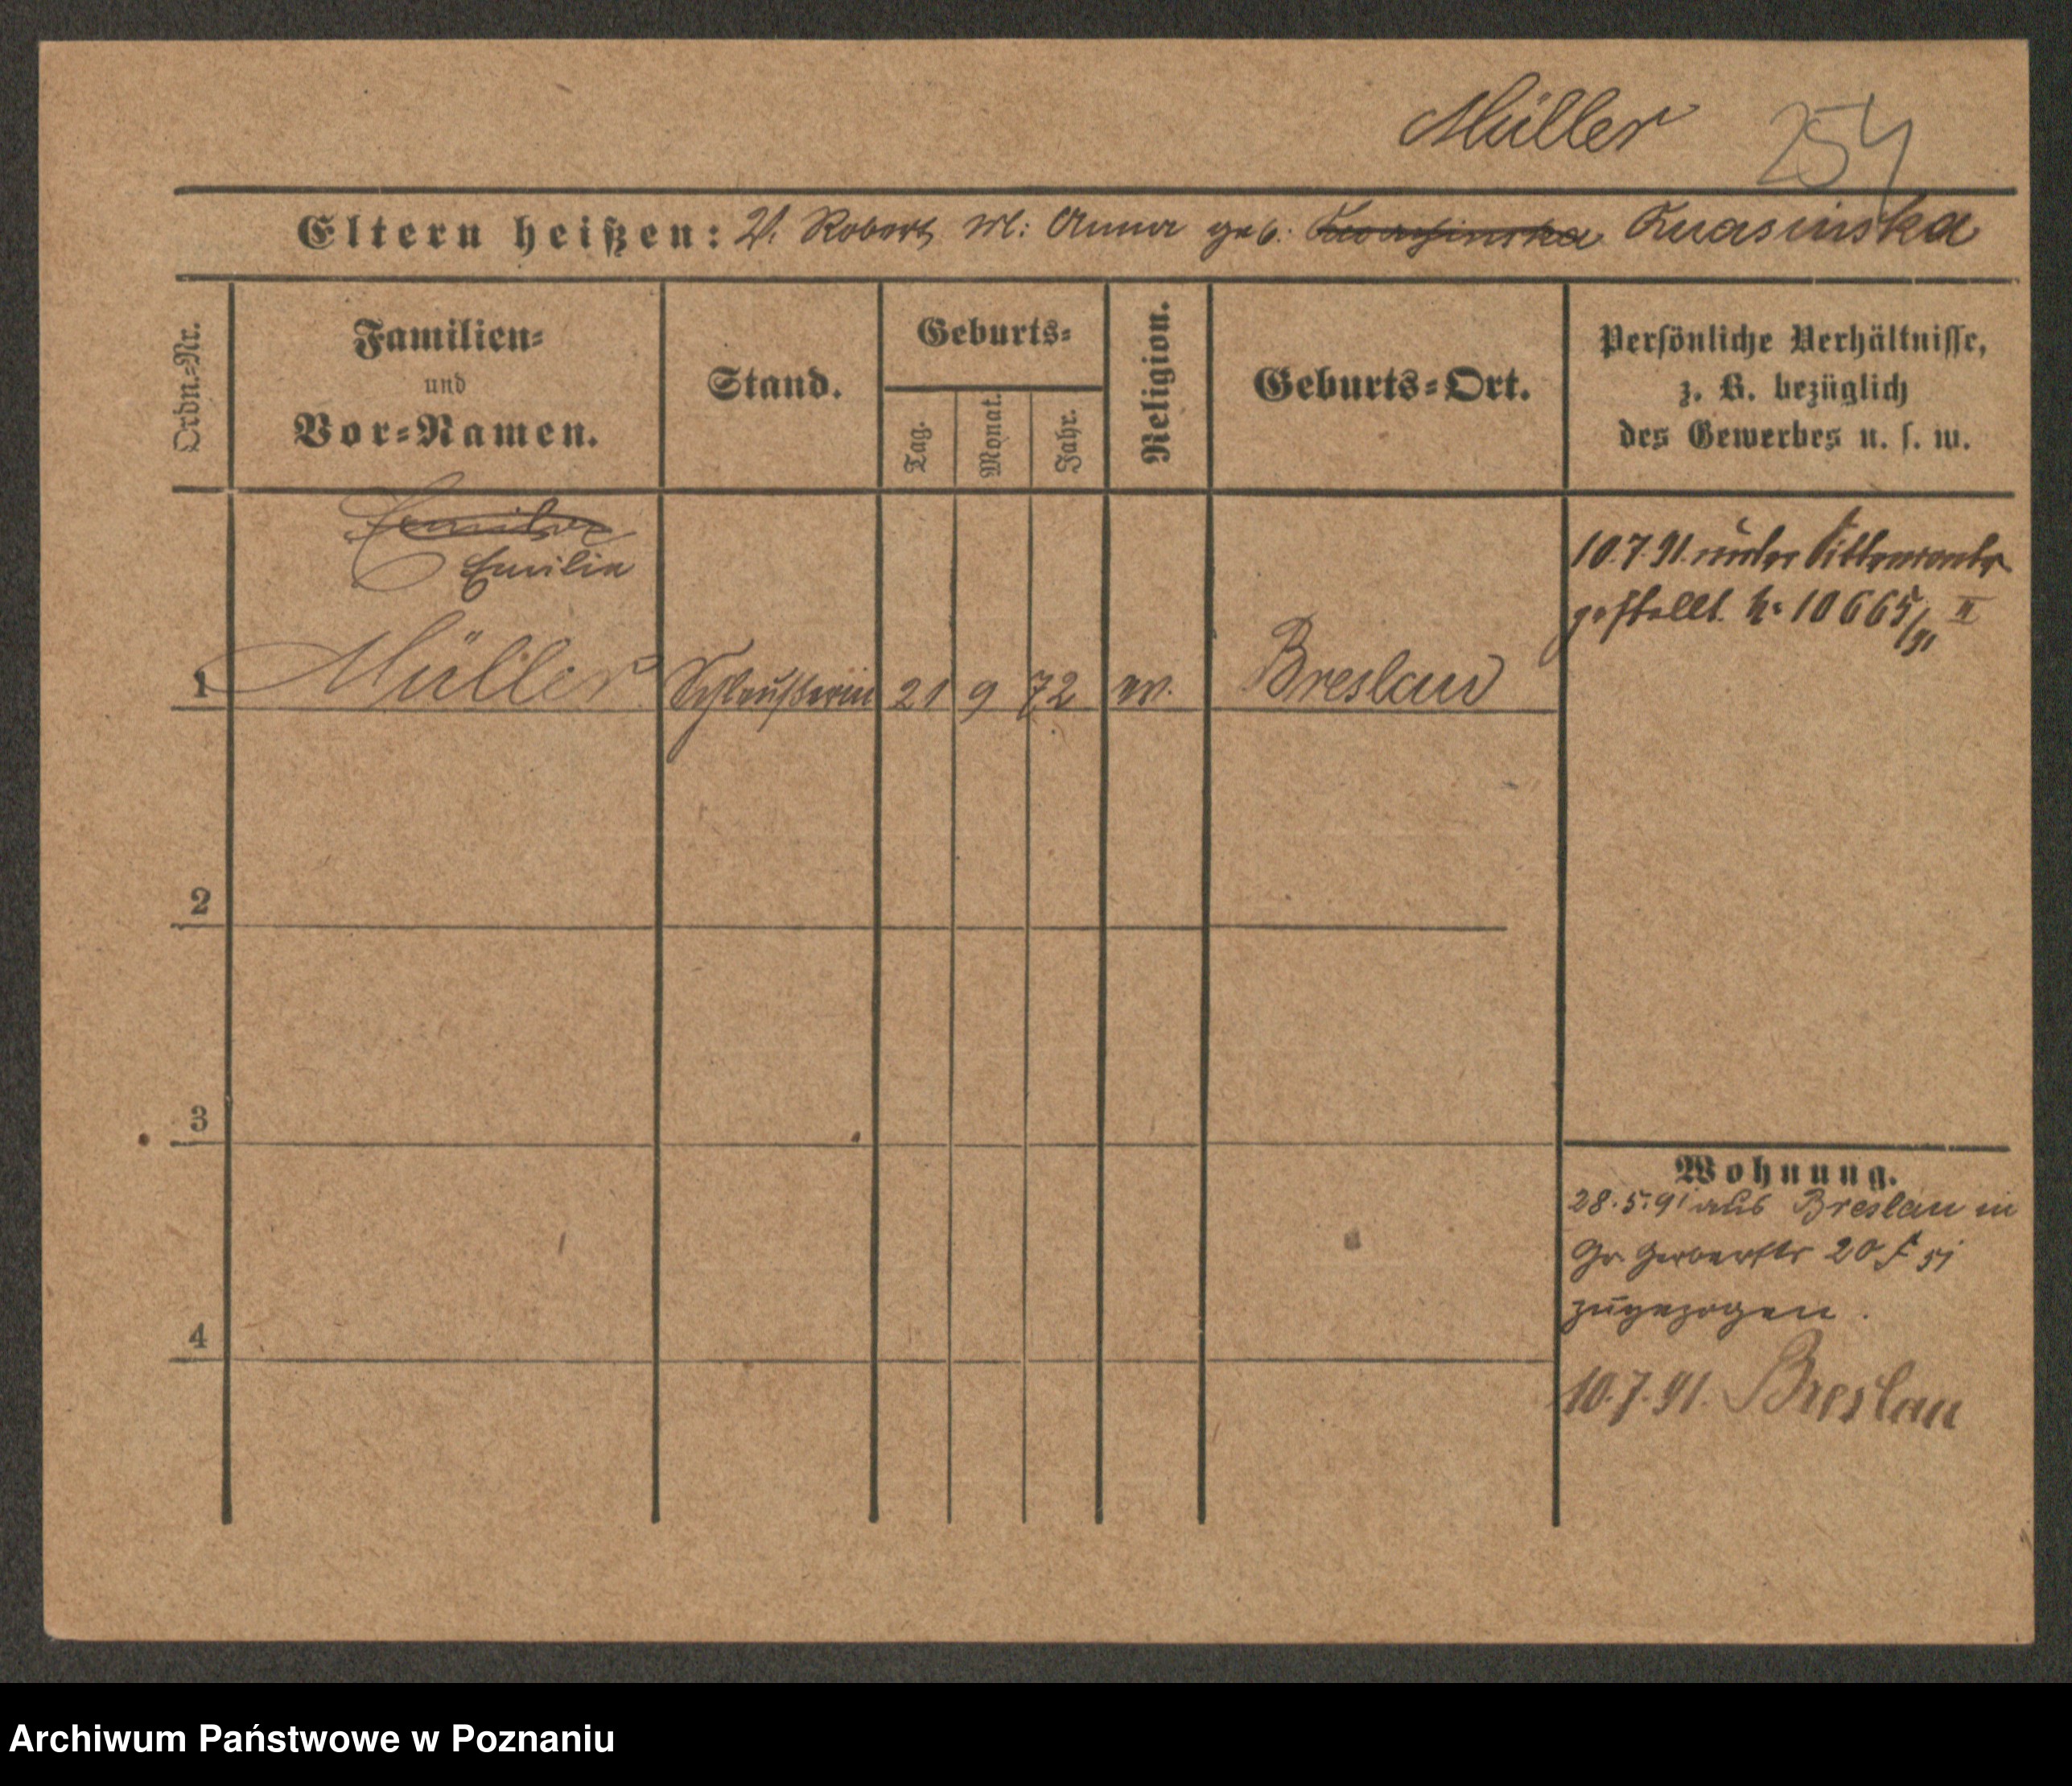 Müller 254
Eltern heißen: V. Robert M: Anna geb. Knasinska
Ordn.-Nr.
Familien-
und
Vor-Namen.
Stand.
Geburts-
Tag.
Monat.
Jahr.
Religion.
Geburts-Ort.
Persönliche Verhältnisse,
z. B. bezüglich
des Gewerbes u. s. w.
Emilie
Emilie
1 Müller 21 9 72 ev. Breslau
10.7.91. unter Sittenkontr.
gestellt. N. 10665/91 II
2
3
4
Wohnung.
28.5.91 aus Breslau in
Gr. Gerberstr 20
zugezogen.
10.7.91. Breslau
Archiwum Państwowe w Poznaniu